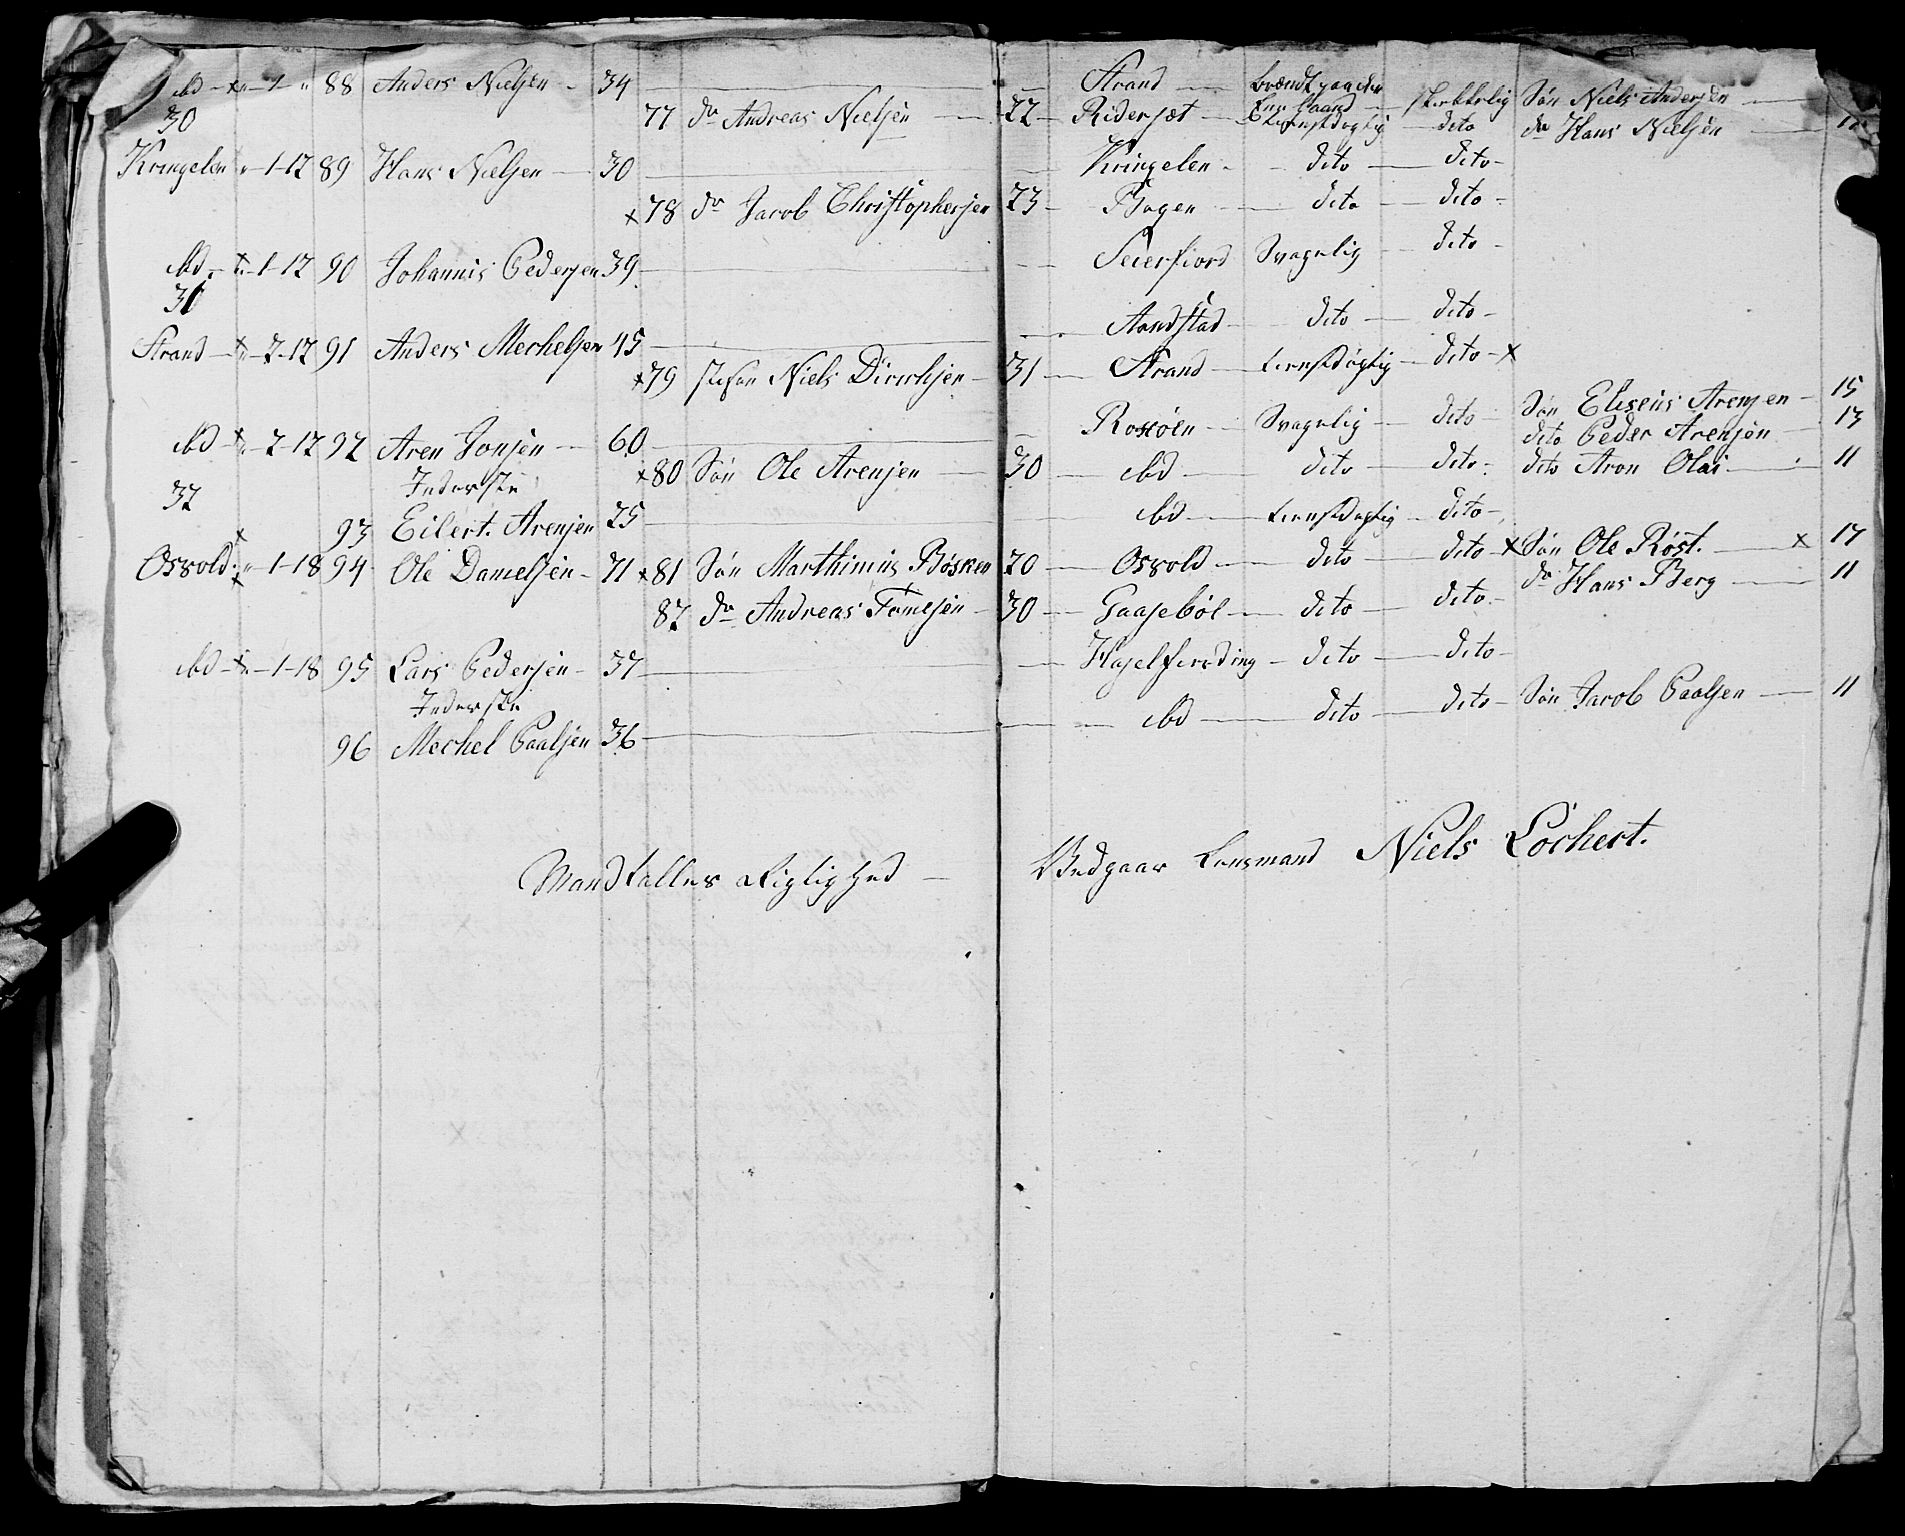 ibd - x " - 1 - " 88 Anders Nielsen - 34 Strand
30 77 do Andreas Nielsen 22 Ridersæt Tienstdygtig dito
Søn Niels Andersen
do Hans Nielsen
Kringelen " 1-12 89 Hans Nielsen 30 Kringelen - dito dito
x 78 do Jacob Christophersen 23 Bogen dito dito
ibd - x " - 1-12 90 Johannis Pedersen 39 Seierfiord Svagelig dito
31
Strand - x " - 2-12 91 Anders Mechelsen 45 Aandstad dito dito
x 79 Niels Dirichsen 31 Strand Tienstdygtig dito x
ibd x " - 2-12 92 Aren Jonsen 60 Rosøen Svagelig dito
Søn Eliseus Arensen 15
dito Peder Arensen 13
Inderste x 80 Søn Ole Arensen 30 ibd dito dito dito Aron Olai 11
32
x 93 Eilert Arensen 25 ibd Tienstdygtig dito
Osvold " - 1-18 94 Ole Danielsen 71 x 81 Søn Marthinus Bøsken 20 Osvold dito dito x Søn Ole Røst. x 17
do Hans Berg 11
82 do Andreas Tomesen 30 Gaasebøl dito dito
ibd - x " - 1-18 95 Lars Pedersen 37 Haselfierding dito dito
Inderste
96 Mechel Paalsen 36 ibd dito dito Søn Jacob Paalsen 11
Mandtallets Rigtighed - Vedgaar Lensmand Niels Lochert.